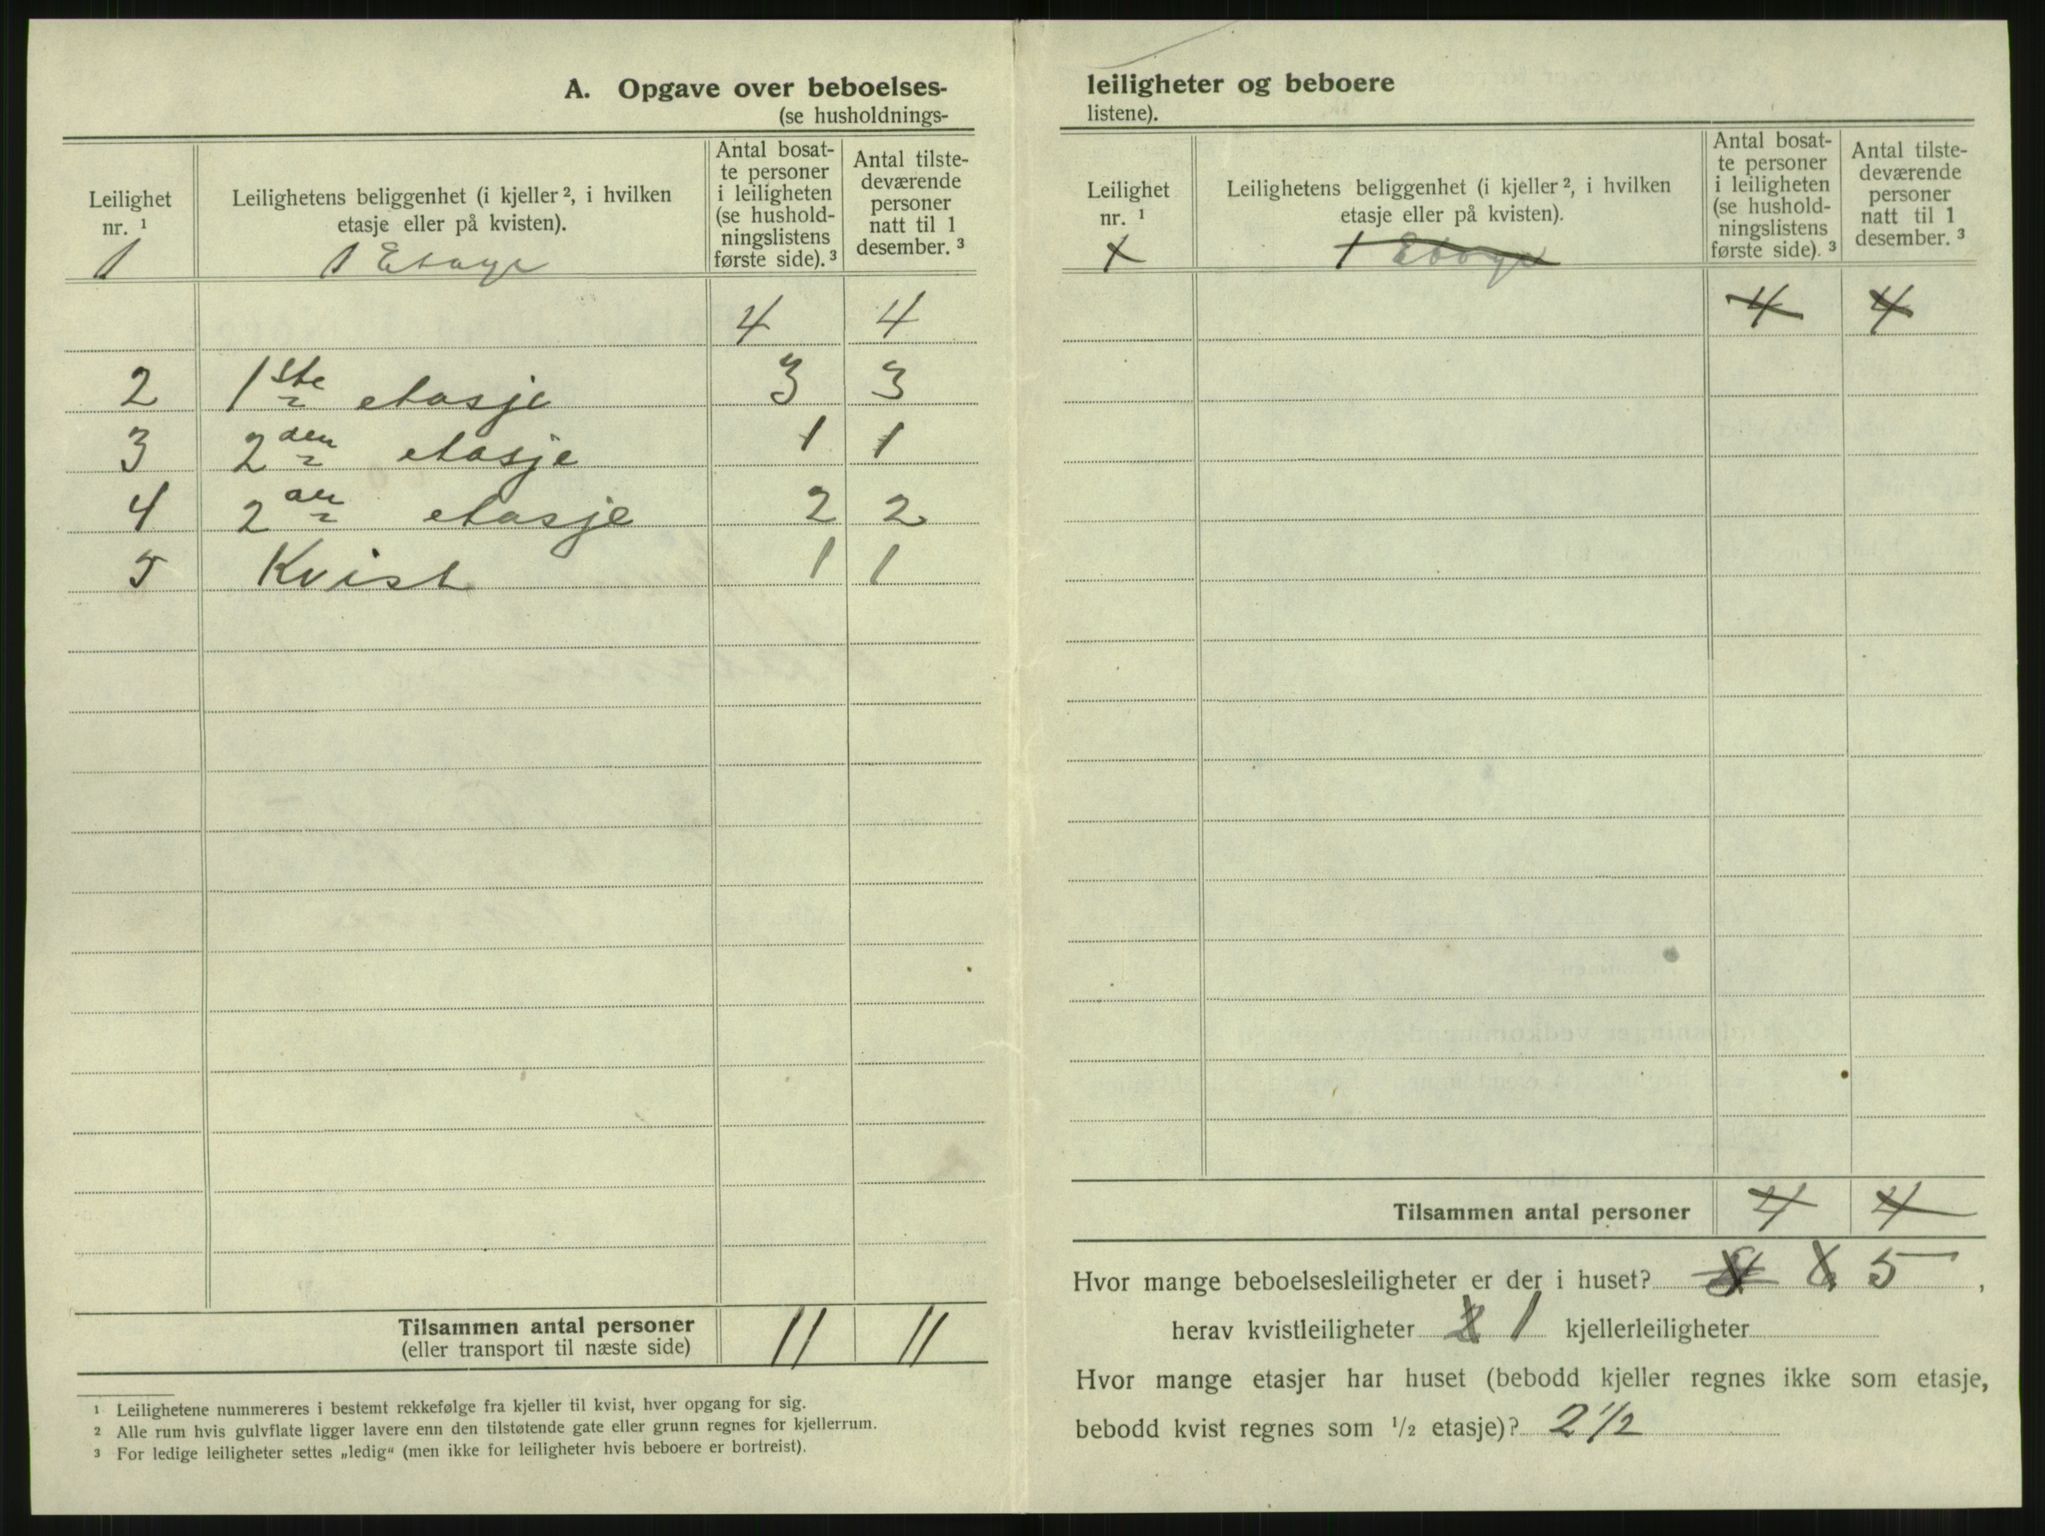 A. Opgave over beboelses-
(se husholdnings-
Leilighet
nr. ¹
Leilighetens beliggenhet (i kjeller ², i hvilken
etasje eller på kvisten).
Antal bosat-
te personer
i leiligheten
(se hushold-
ningslistens
første side). ³
Antal tilste-
deværende
personer
natt til 1
desember. ³
1 1 Etage
4 4
2 1ste etasje 3 3
3 2den etasje 1 1
4 2den etasje 2 2
5 Kvist 1 1
Tilsammen antal personer
(eller transport til næste side)
11 11
¹ Leilighetene nummereres i bestemt rekkefølge fra kjeller til kvist, hver opgang for sig.
² Alle rum hvis gulvflate ligger lavere enn den tilstøtende gate eller grunn regnes for kjellerrum.
³ For ledige leiligheter settes „ledig“ (men ikke for leiligheter hvis beboere er bortreist).
leiligheter og beboere
listene).
Leilighet
nr. ¹
Leilighetens beliggenhet (i kjeller ², i hvilken
etasje eller på kvisten).
Antal bosat-
te personer
i leiligheten
(se hushold-
ningslistens
første side). ³
Antal tilste-
deværende
personer
natt til 1
desember. ³
1 1 Etage
4 4
Tilsammen antal personer 4 4
Hvor mange beboelsesleiligheter er der i huset? 6 5,
herav kvistleiligheter 2 1 kjellerleiligheter
Hvor mange etasjer har huset (bebodd kjeller regnes ikke som etasje,
bebodd kvist regnes som ½ etasje)? 2 ½